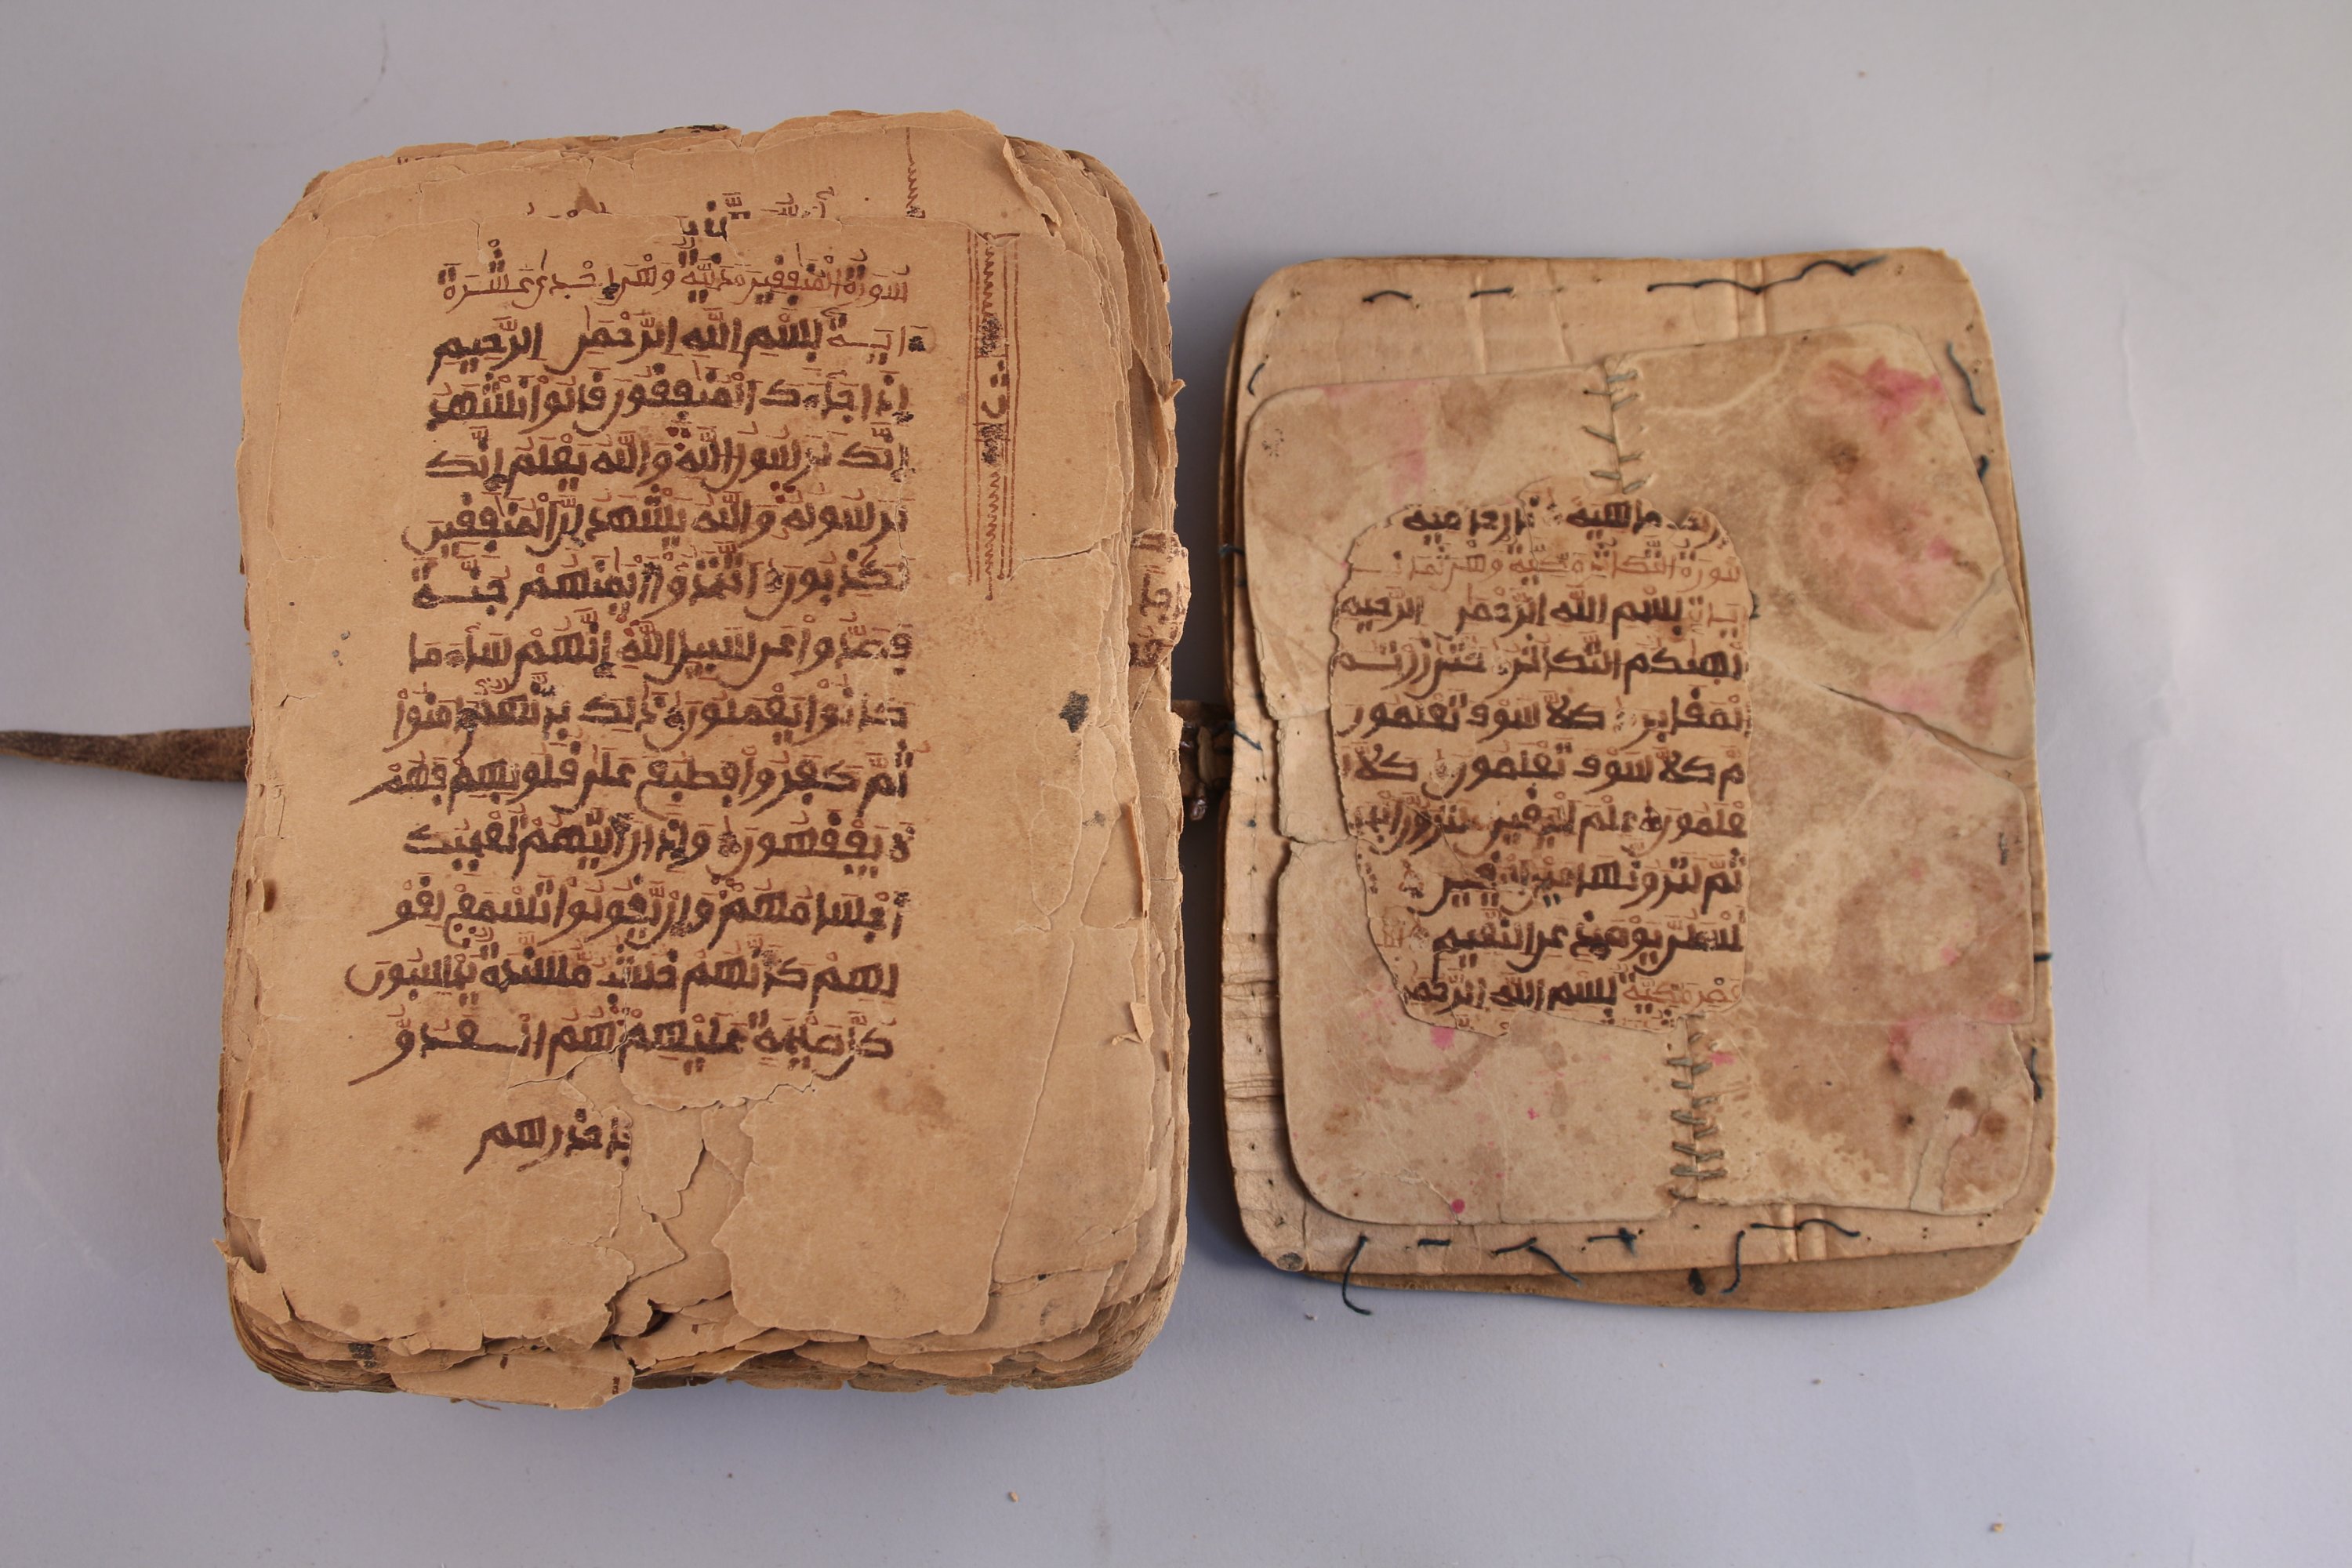 سورة المنٰفقين مدنية وهى إحدى عشرة
ءاية بسم الله الرحمن الرحيم
إذا جاءك المنٰفقون قالوا نشهد
إنك لرسول الله والله يعلم إنك
لرسوله والله يشهد إن المنٰفقين
لكٰذبون اتخذوا أيمٰنهم جنة
فصدوا عن سبيل الله إنهم ساء ما
كانوا يعملون ذٰلك بأنهم ءامنوا
ثم كفروا فطبع على قلوبهم فهم
لا يفقهون وإذا رأيتهم تعجبك
أجسامهم وإن يقولوا تسمع لقو
لهم كأنهم خشب مسندة يحسبون
كل صيحة عليهم هم العدو
فاحذرهم
ما هيه نار حامية
سورة التكاثر مكية وهى ثمان
ية بسم الله الرحمن الرحيم
ألهٰكم التكاثر حتى زرتم
المقابر كلا سوف تعلمون
ثم كلا سوف تعلمون كلا
تعلمون علم اليقين لترون الج
ثم لترونها عين اليقين
لتسئلن يومئذ عن النعيم
عصر مكية بسم الله الرحمن